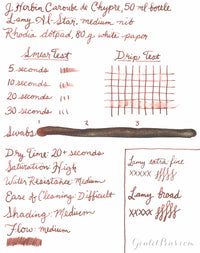 J Herbin Caroube de Chypre, 50 ml bottle
Lamy Al-Star, medium nib
Rhodia dotpad, 80 g white paper
Smear Test
Drip Test
5 seconds
10 seconds
20 seconds
30 seconds
1 2 3
Swabs
Dry Time: 20+ seconds
Saturation: High
Water Resistance: Medium
Ease of Cleaning: Difficult
Shading: Medium
Flow: medium
Lamy extra fine
xxxxx
Lamy broad
xxxxx
GouletPens.com